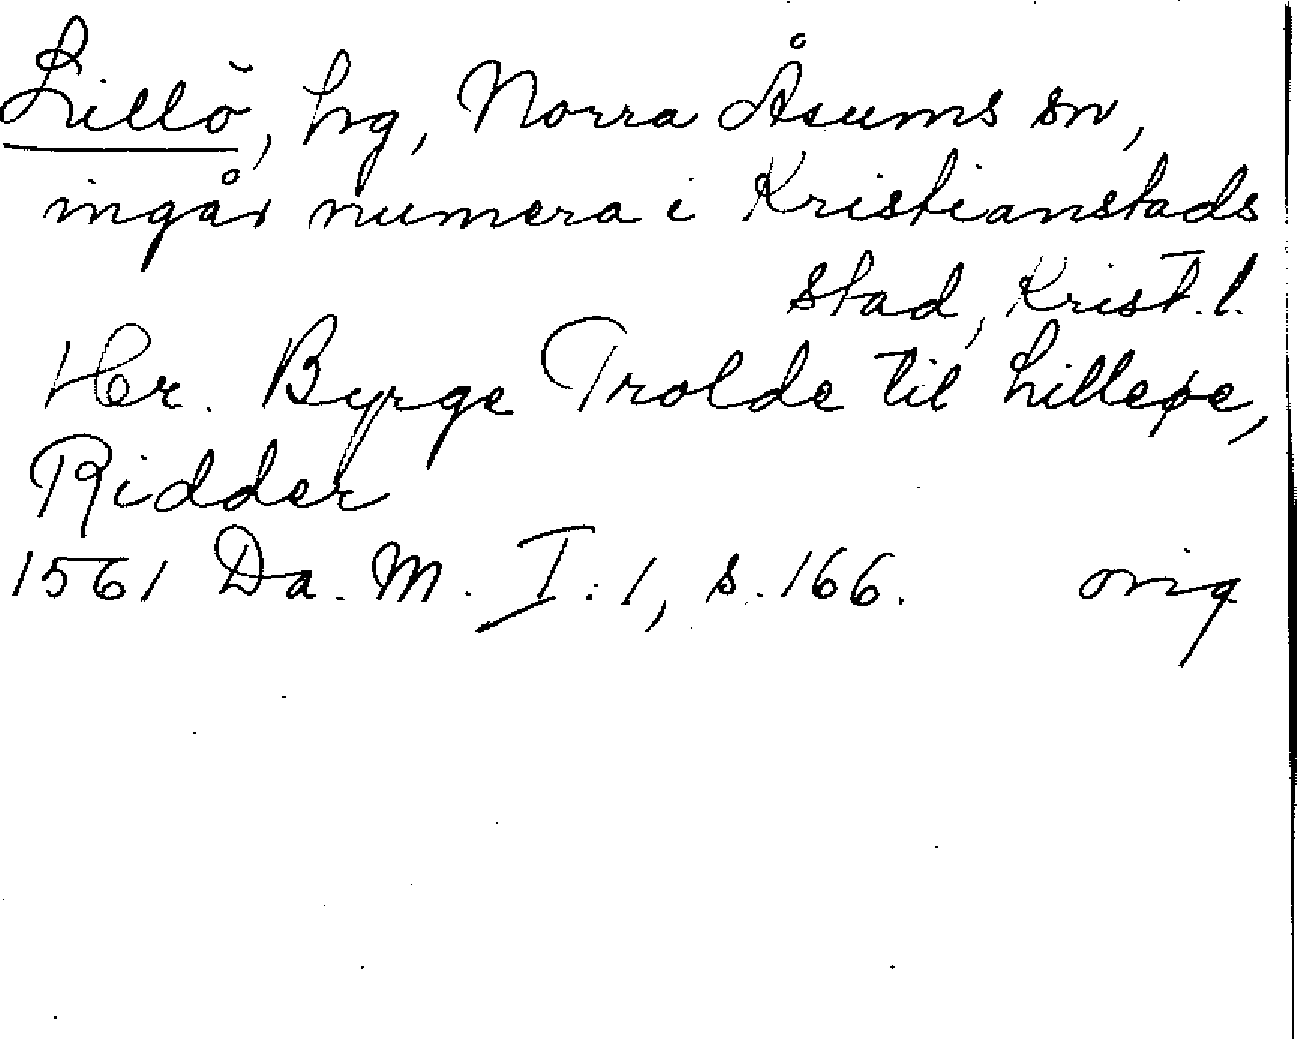 Lillö, hg, Norra Åsums sn,
ingår numera i Kristianstads
stad, Krist. l.
Her. Byrge Trolde til Lilleøe,
Ridder
1561 Da. M. I: 1, s. 166. orig